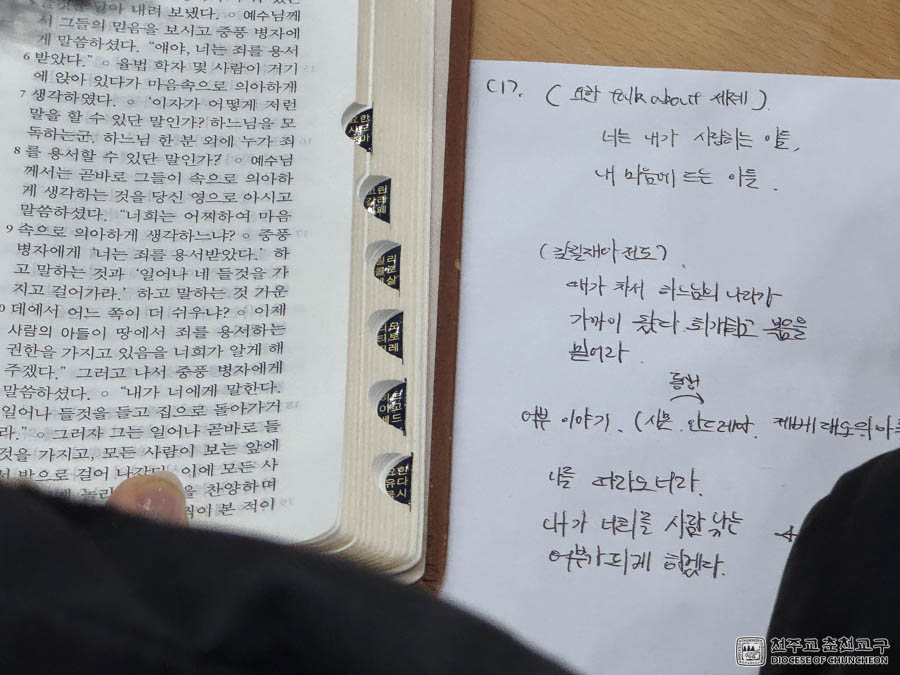 내려 보냈다. ○ 예수님께
서 그들의 믿음을 보시고 중풍 병자에
게 말씀하셨다. “얘야, 너는 죄를 용서
6 받았다.” ○ 율법 학자 몇 사람이 거기
에 앉아 있다가 마음속으로 의아하게
7 생각하였다. ○ ‘이자가 어떻게 저런
말을 할 수 있단 말인가? 하느님을 모
독하는군. 하느님 한 분 외에 누가 죄
8 를 용서할 수 있단 말인가?’ ○ 예수님
께서는 곧바로 그들이 속으로 의아하
게 생각하는 것을 당신 영으로 아시고
말씀하셨다. “너희는 어찌하여 마음
9 속으로 의아하게 생각하느냐? ○ 중풍
병자에게 ‘너는 죄를 용서받았다.’ 하
고 말하는 것과 ‘일어나 네 들것을 가
지고 걸어가라.’ 하고 말하는 것 가운
0 데에서 어느 쪽이 더 쉬우냐? ○ 이제
사람의 아들이 땅에서 죄를 용서하는
권한을 가지고 있음을 너희가 알게 해
주겠다.” 그러고 나서 중풍 병자에게
말씀하셨다. ○ “내가 너에게 말한다.
일어나 들것을 들고 집으로 돌아가거
라.” ○ 그러자 그는 일어나 곧바로 들
것을 가지고, 모든 사람이 보는 앞에
밖으로 걸어 나갔다. 이에 모든 사
찬양하며
본 적이
요한
유다
묵시
C17. (요한 talk about 세례).
너는 내가 사랑하는 아들,
내 마음에 드는 아들.
(갈릴래아 전도).
때가 차서 하느님의 나라가
가까이 왔다 회개하고 복음을
믿어라.
동생
어부 이야기. (시몬. 안드레아. 제베대오의 아
나를 따라오너라.
내가 너희를 사람 낚는
어부가 되게 하겠다.
천주교 춘천교구
DIOCESE OF CHUNCHEON